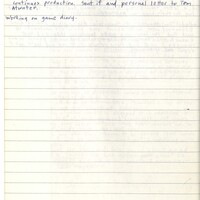 continues production. Sent it and personal letter to Tom
Atwater.
Working on game diary.